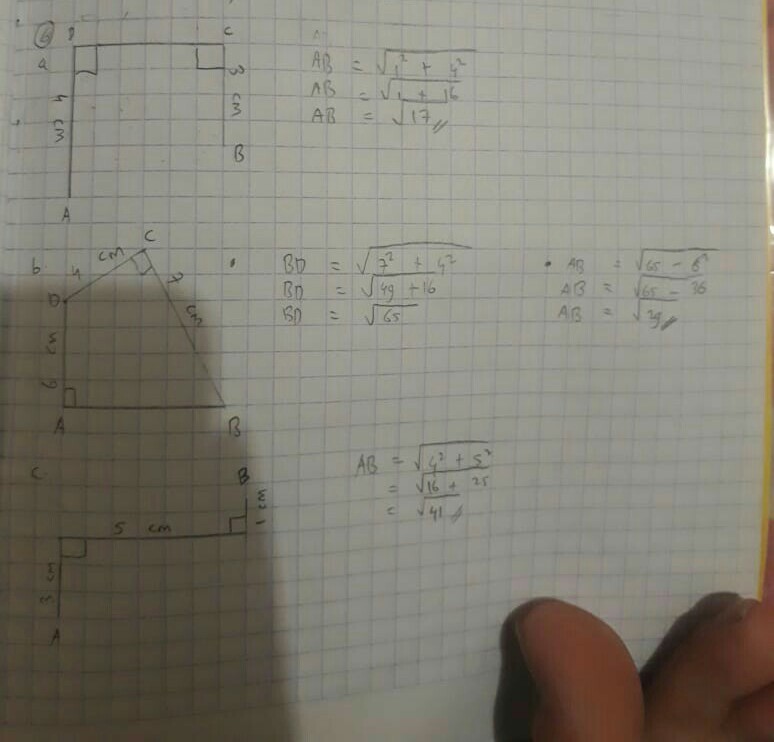 6
D C
a
4 cm
3 cm
B
A
AB = √1² + 4²
AB = √1 + 16
AB = √17
b.
C
4 cm
7 cm
D
6 cm
A B
• BD = √7² + 4²
BD = √49 + 16
BD = √65
• AB = √65 - 6²
AB = √65 - 36
AB = √29
c.
B
1 cm
5 cm
3 cm
A
AB = √4² + 5²
= √16 + 25
= √41